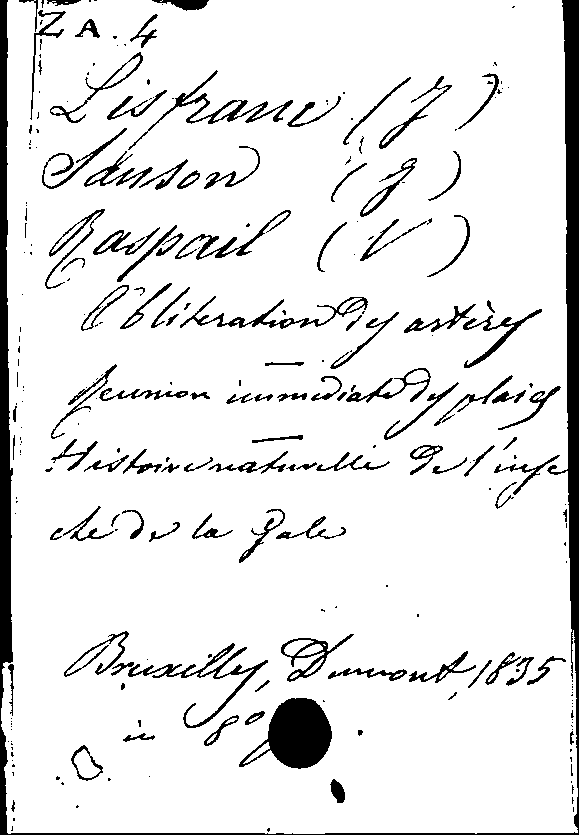 ZA. 4
Lisfranc (J)
Sanson (J)
Raspail (V)
Oblitération des artères
—
Reunion immédiate des plaies
—
Histoire naturelle de l'inse
cte de la Gale
Bruxelles, Dumont, 1835
in 8º